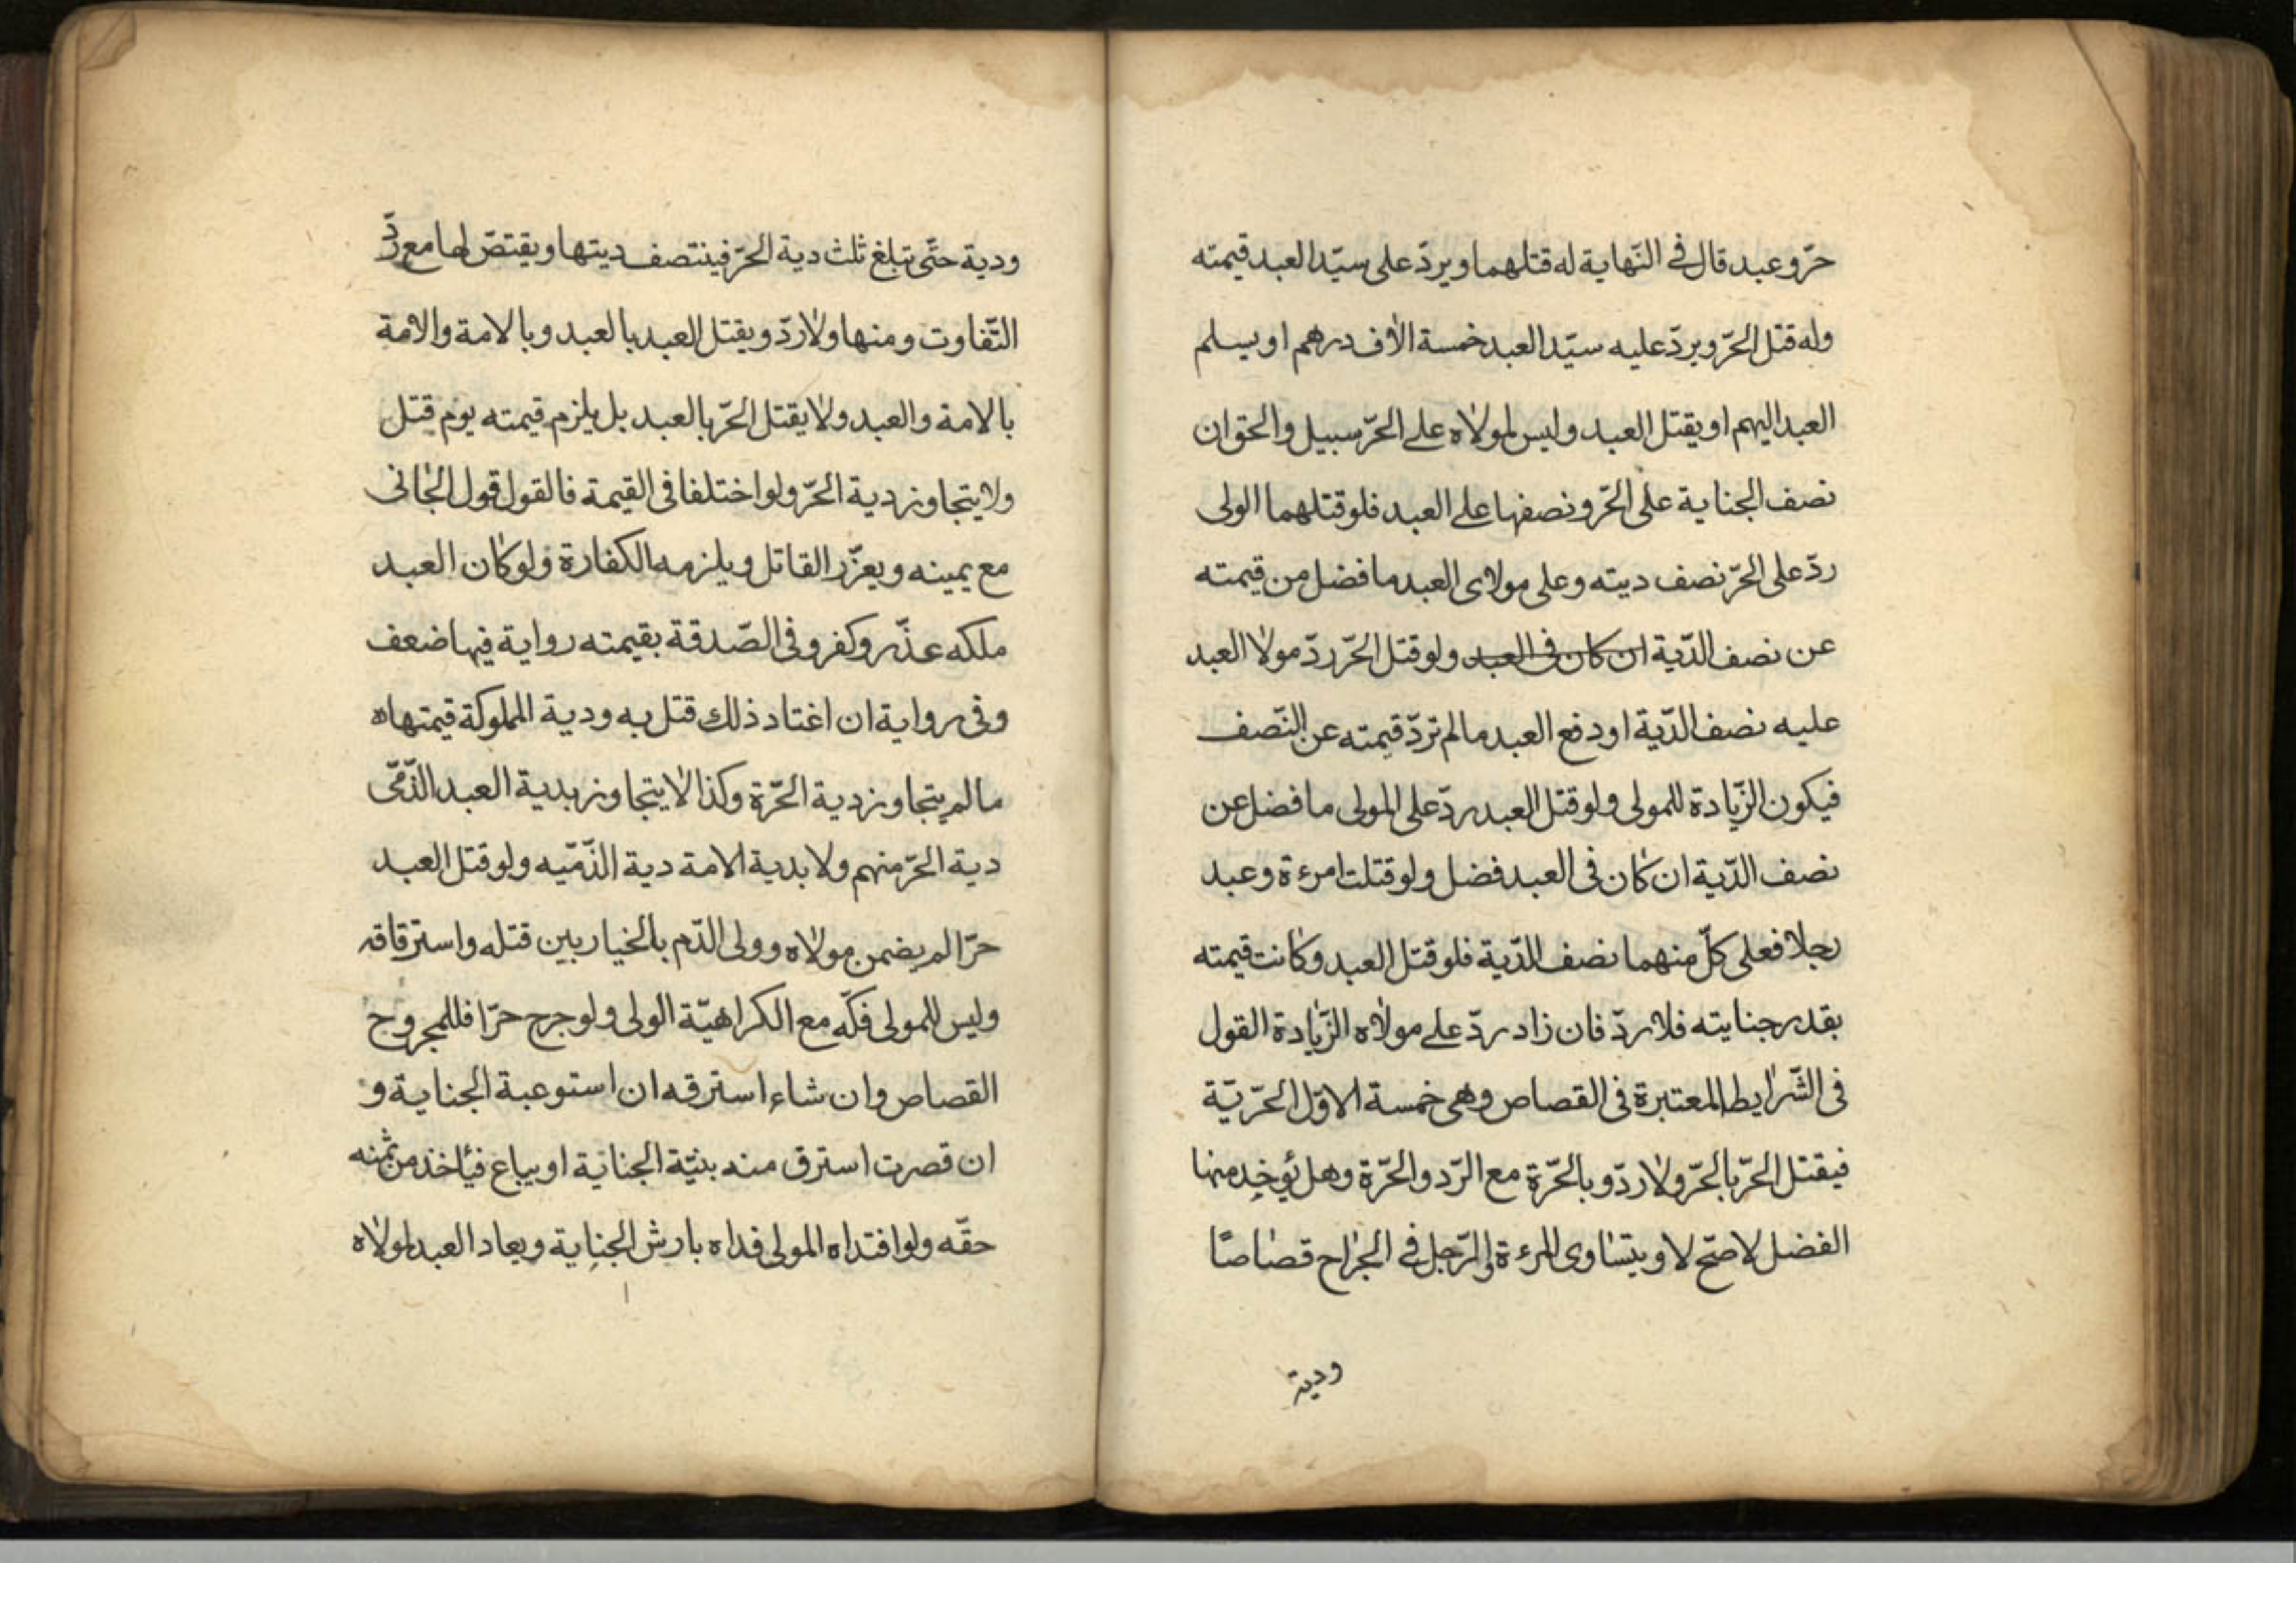 حرّ وعبد قال في النّهاية له قتلهما ويردّ على سيّد العبد قيمته
وله قتل الحرّ ويردّ عليه سيّد العبد خمسة الاف درهم او يسلم
العبد اليهم او يقتل العبد وليس لمولاه على الحرّ سبيل والحق ان
نصف الجناية على الحرّ ونصفها على العبد فلو قتلهما الولى
ردّ على الحرّ نصف ديته وعلى مولاى العبد ما فضل من قيمته
عن نصف الدّية ان كان فى العبد ولو قتل الحرّ ردّ مولا العبد
عليه نصف الدّية او دفع العبد ما لم تردّ قيمته عن النّصف
فيكون الزّيادة للمولى ولو قتل العبد ردّ على المولى ما فضل عن
نصف الدّية ان كان فى العبد فضل ولو قتلت امرءة وعبد
رجلا فعلى كلّ منهما نصف الدّية فلو قتل العبد وكانت قيمته
بقدر جنايته فلا ردّ فان زاد ردّ على مولاه الزّيادة القول
فى الشّرايط المعتبرة فى القصاص وهى خمسة الاوّل الحرّيّة
فيقتل الحرّ بالحرّ ولا ردّ و بالحرّة مع الرّد والحرّة وهل يؤخد منها
الفضل لاصحّ لا ويتساوى المرءة والرّجل في الجراح قصاصًا
ودية
ودية حتّى تبلغ ثلث دية الحرّ فينتصف ديتها ويقتصّ لها مع ردّ
التّفاوت ومنها ولا ردّ ويقتل العبد بالعبد وبالامة والامة
بالامة والعبد ولا يقتل الحرّ بالعبد بل يلزم قيمته يوم قتل
ولا يتجاوز دية الحرّ ولو اختلفا فى القيمة فالقول قول الجانى
مع يمينه ويعزّر القاتل ويلزمه الكفارة ولو كان العبد
ملكه عذّر وكفر وفى الصّدقة بقيمته رواية فيها ضعف
وفى رواية ان اغتاد ذلك قتل به ودية المملوكة قيمتهاه
ما لم يتجاوز دية الحرّة وكذا لا يتجاوز بدية العبد الذّمّى
دية الحرّ منهم ولا بدية الامة دية الذّمّيه ولو قتل العبد
حرّا لم يضمن مولاه وولى الدّم بالخيار بين قتله واسترقاقه
وليس للمولى فكّه مع الكراهيّة الولى ولو جرح حرّا فللمجروح
القصاص وان شاء استرقه ان استوعبة الجناية و
ان قصرت استرق منه بنيّة الجناية او يباع فيأخذ من ثمنه
حقّه ولو افتداه المولى فداه بارش الجناية ويعاد العبد لمولاه